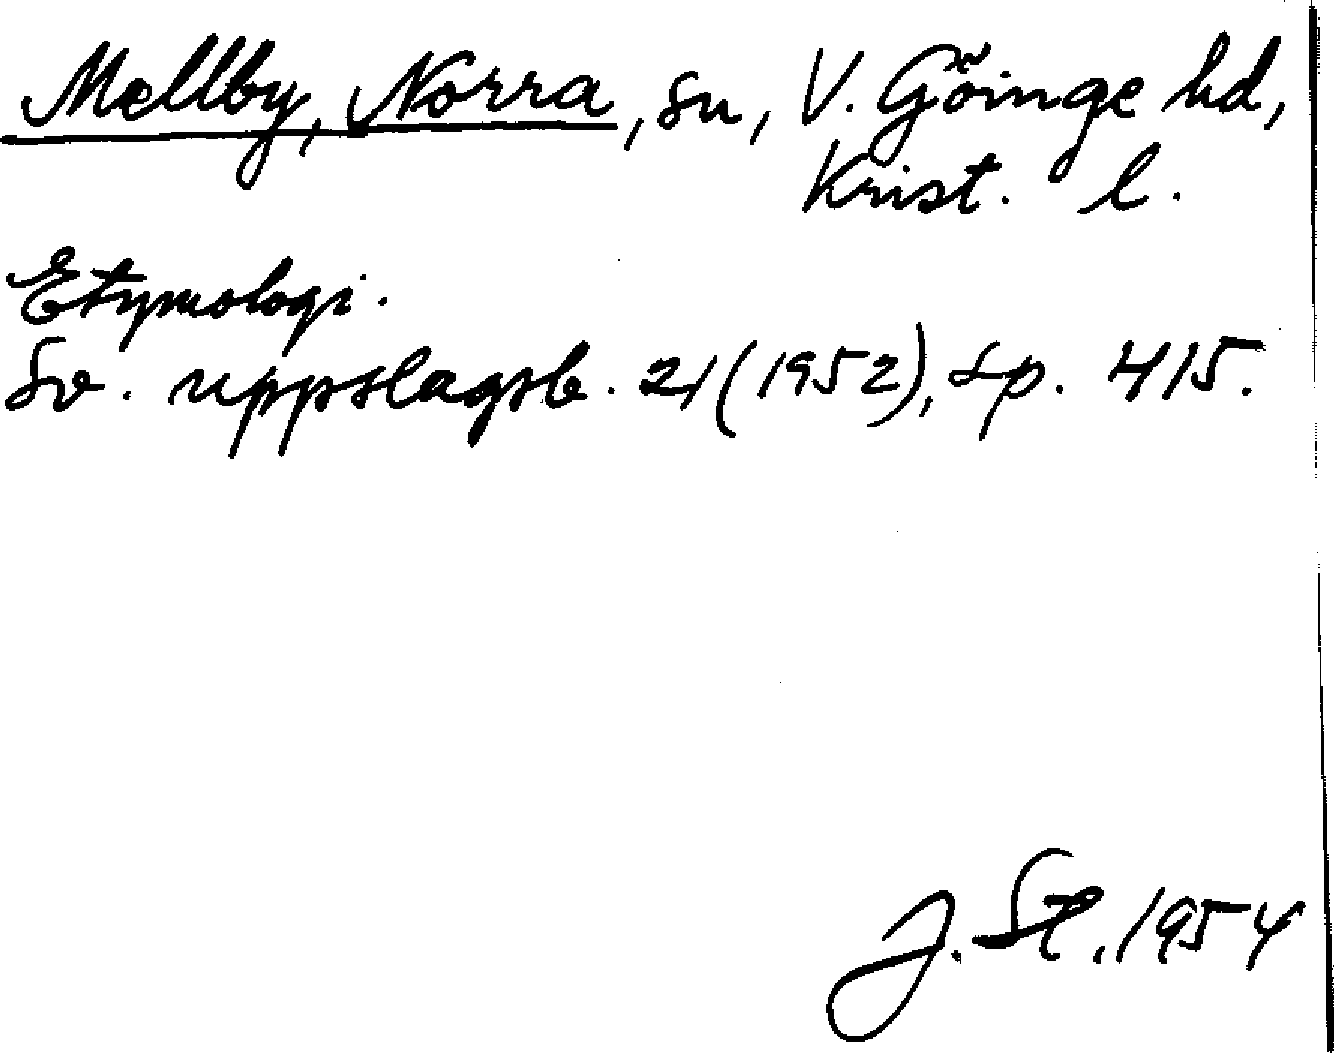 Mellby, Norra, sn, V. Göinge hd,
Krist. l.
Etymologi.
Sv. uppslagsb. 21 (1952), sp. 415.
J. St. 1954